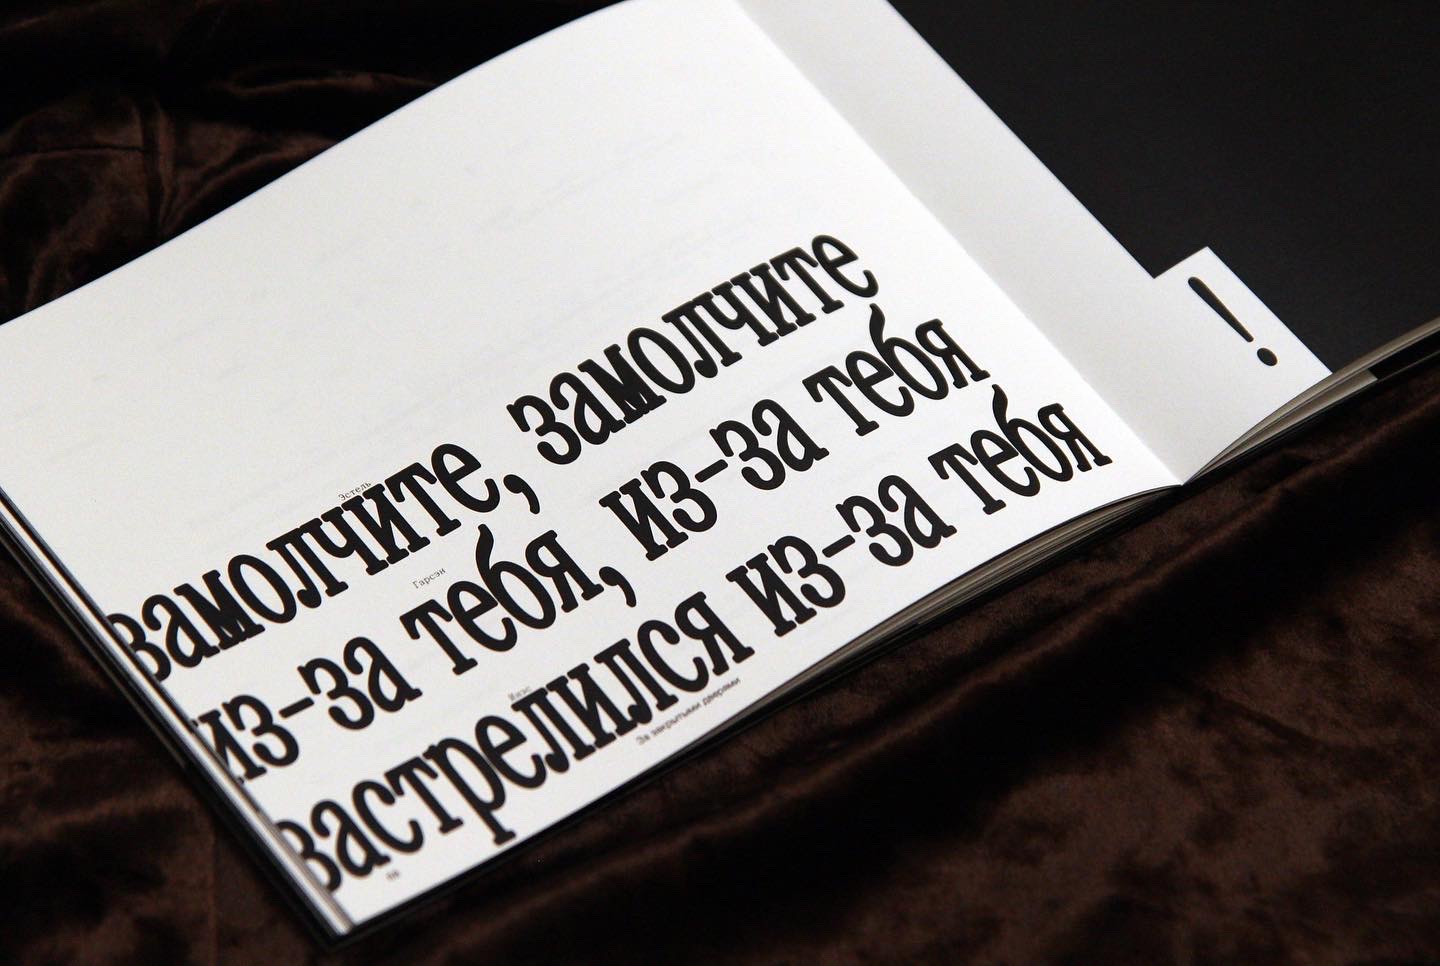 замолчите, замолчите
Эстель
из-за тебя, из-за тебя
Гарсэн
застрелился из-за тебя
Инэс
За закрытыми дверями
!